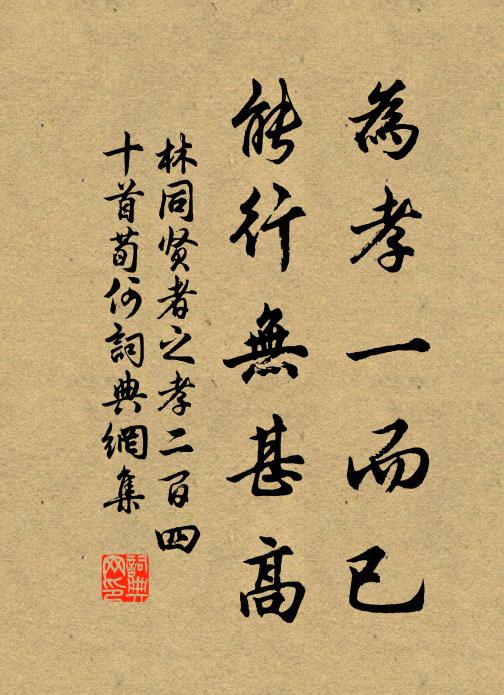 為孝一而已
能行無甚高
林同贤者之孝二百四
十首荀何詞典網集
詞典
网印